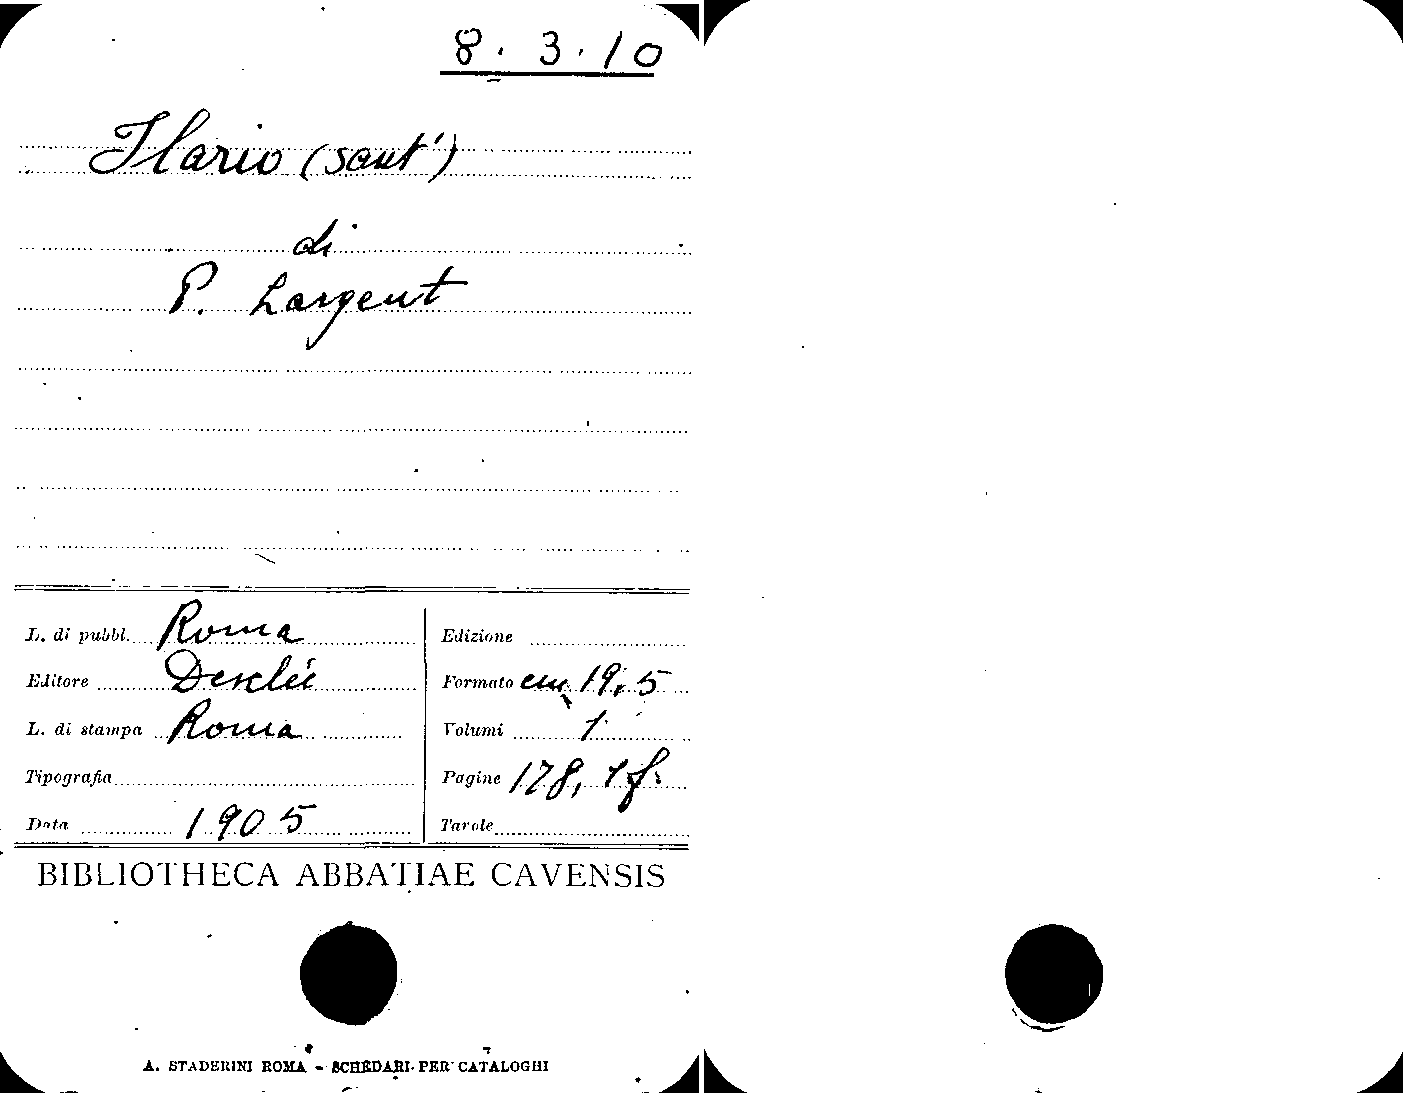 8. 3. 10
Ilario (sant')
di
P. Largent
L. di pubbl. Roma
Editore Desclée
L. di stampa Roma
Tipografia
Data 1905
Edizione
Formato cm. 19,5
Volumi 1
Pagine 178, 1 f.
Tavole
BIBLIOTHECA ABBATIAE CAVENSIS
A. STADERINI ROMA - SCHEDARI PER CATALOGHI